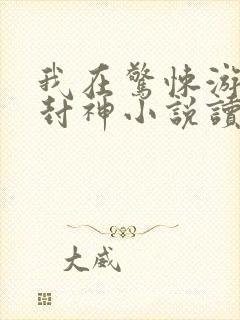 我在驚悚游
封神小說讀
大威